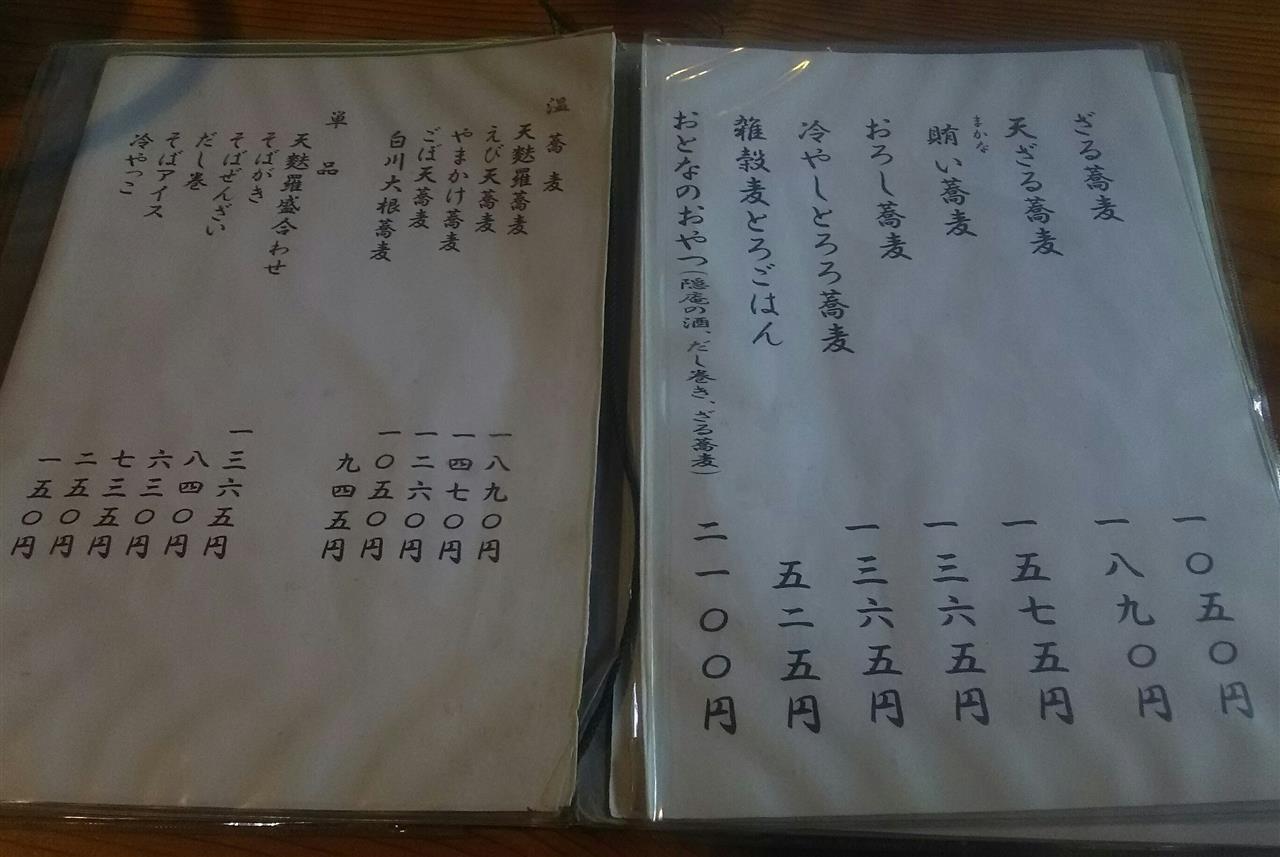 ざる蕎麦 一〇五〇円
天ざる蕎麦 一八九〇円
まかな
賄い蕎麦 一五七五円
おろし蕎麦 一三六五円
冷やしとろろ蕎麦 一三六五円
雑穀麦とろごはん 五二五円
おとなのおやつ(隠庵の酒、だし巻き、ざる蕎麦) 二一〇〇円
温蕎麦
天麩羅蕎麦 一八九〇円
えび天蕎麦 一四七〇円
やまかけ蕎麦 一二六〇円
ごぼ天蕎麦 一〇五〇円
白川大根蕎麦 九四五円
単品
天麩羅盛合わせ 一三六五円
そばがき 八四〇円
そばぜんざい 六三〇円
だし巻 七三五円
そばアイス 二五〇円
冷やっこ 一五〇円